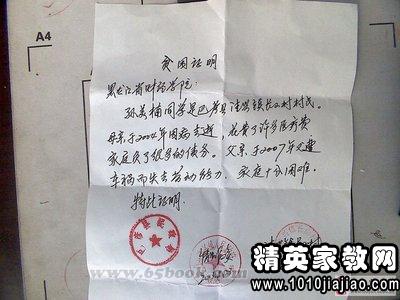 A4
贫困证明
黑龙江省财经学院:
孙美楠同学是巴彦县洼兴镇长久村村民
母亲于2004年因病去逝,花费了许多医疗费
家庭负了很多的债务。父亲于2007年又遭
车祸而失去劳动能力,家庭十分困难
特此证明
www.65book.com
精英家教网
www.1010jiajiao.com